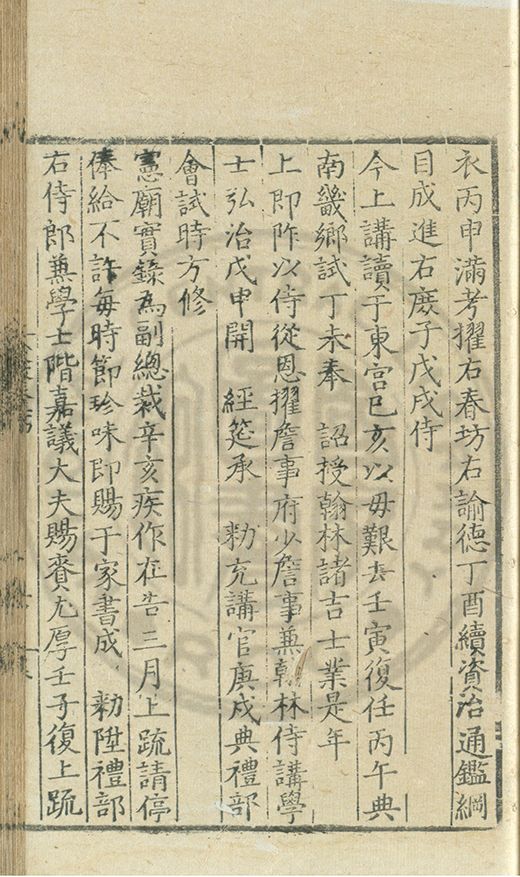 衣丙申滿考擢右春坊右諭德丁酉續資治通鑑綱
目成進右庶子戊戌侍
今上講讀于東宫已亥以毋艱去壬寅復任丙午典
南畿鄉試丁未奉 詔授翰林諸吉士業是年
上即阼以侍從恩擢詹事府少詹事兼翰林侍講學
士弘治戊申開 經筵承 勑充講官庚戌典禮部
會試時方修
憲廟實錄為副總裁辛亥疾作在告三月上疏請停
俸給不許每時節珍味即賜于家書成 勑陞禮部
右侍郎兼學士階嘉議大夫賜賚尤厚壬子復上疏